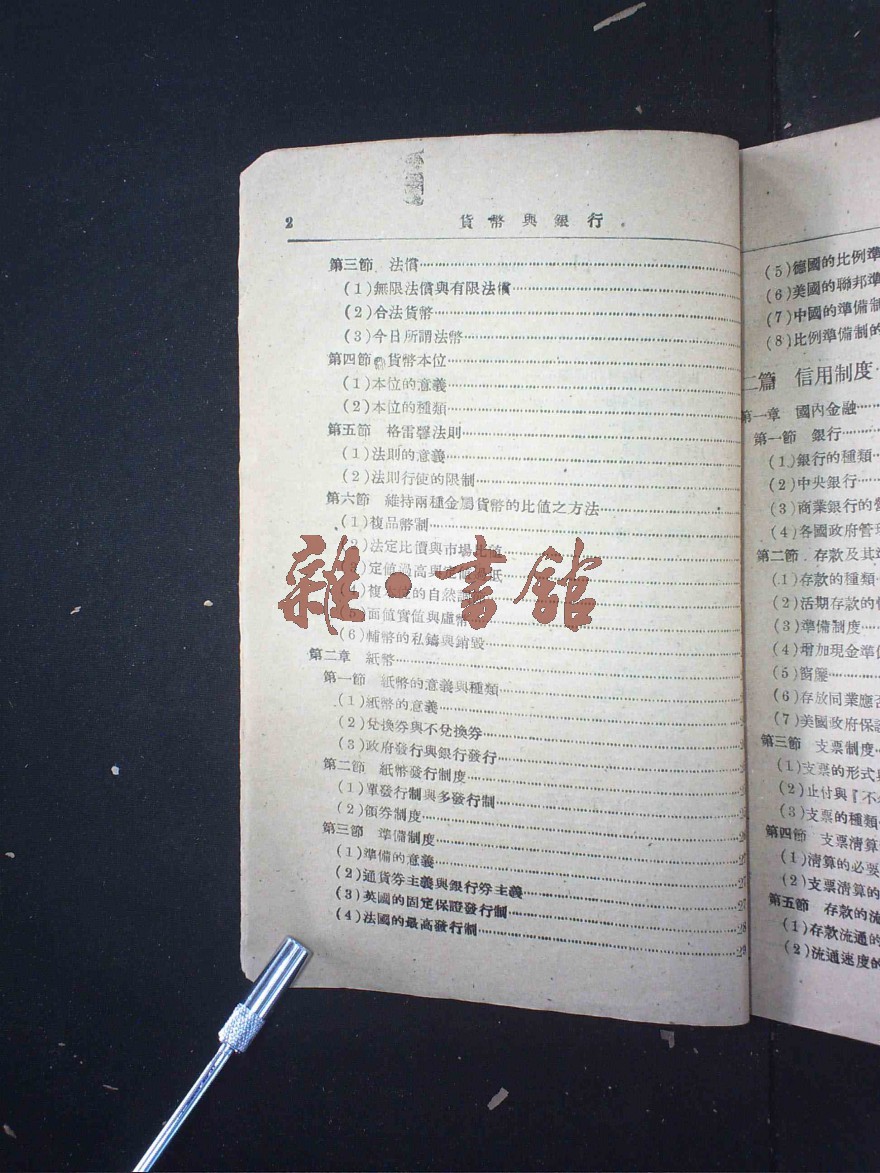 2
貨幣與銀行
第三節 法償
(1)無限法償與有限法償
(2)合法貨幣
(3)今日所謂法幣
第四節 貨幣本位
(1)本位的意義
(2)本位的種類
第五節 格雷馨法則
(1)法則的意義
(2)法則行使的限制
第六節 維持兩種金屬貨幣的比值之方法
(1)複品幣制
(2)法定比價與市場比值
(3)定值過高與定值過低
(4)複本位的自然
(5)面值實值與虛幣
(6)輔幣的私鑄與銷毀
第二章 紙幣
第一節 紙幣的意義與種類
(1)紙幣的意義
(2)兌換券與不兌換券
(3)政府發行與銀行發行
第二節 紙幣發行制度
(1)單發行制與多發行制
(2)領券制度
第三節 準備制度
(1)準備的意義 27
(2)通貨券主義與銀行券主義 27
(3)英國的固定保證發行制 28
(4)法國的最高發行制 29
雜·書館
(5)德國的比例準
(6)美國的聯邦準
(7)中國的準備制
(8)比例準備制的
二篇 信用制度
第一章 國內金融
第一節 銀行
(1)銀行的種類
(2)中央銀行
(3)商業銀行的
(4)各國政府管理
第二節 存款及其
(1)存款的種類
(2)活期存款的
(3)準備制度
(4)增加現金準備
(5)窗飾
(6)存放同業應否
(7)美國政府保
第三節 支票制度
(1)支票的形式
(2)止付與『不
(3)支票的種類
第四節 支票清算
(1)清算的必要
(2)支票清算的
第五節 存款的流
(1)存款流通的
(2)流通速度的